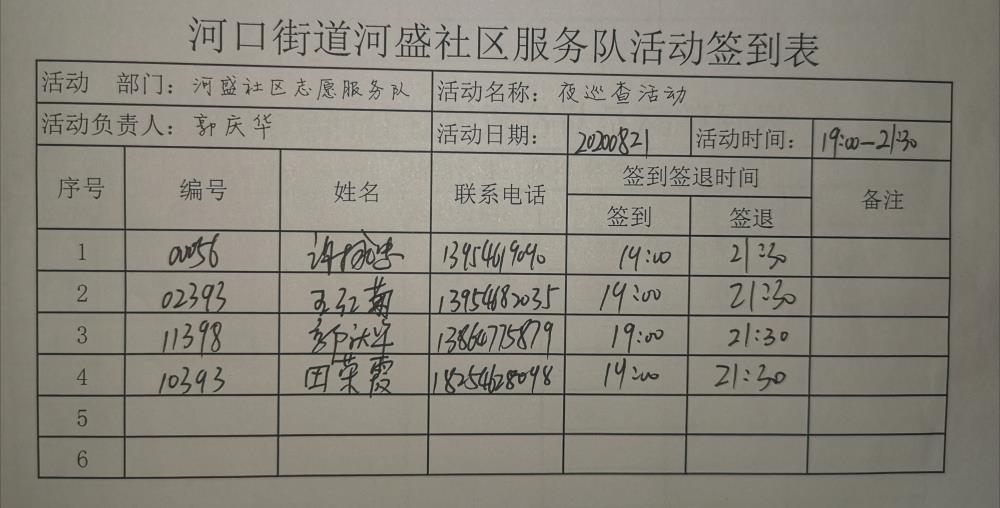 河口街道河盛社区服务队活动签到表
活动 部门：河盛社区志愿服务队 活动名称：夜巡查活动
活动负责人：郭庆华 活动日期：20200821 活动时间：19:00—21:30
序号 编号 姓名 联系电话 签到签退时间 备注
签到 签退
1 00056 13954619090 19:00 21:30
2 02393 王红菊 13954682035 19:00 21:30
3 11398 郭庆华 13864775879 19:00 21:30
4 10393 田荣霞 18254628098 19:00 21:30
5
6